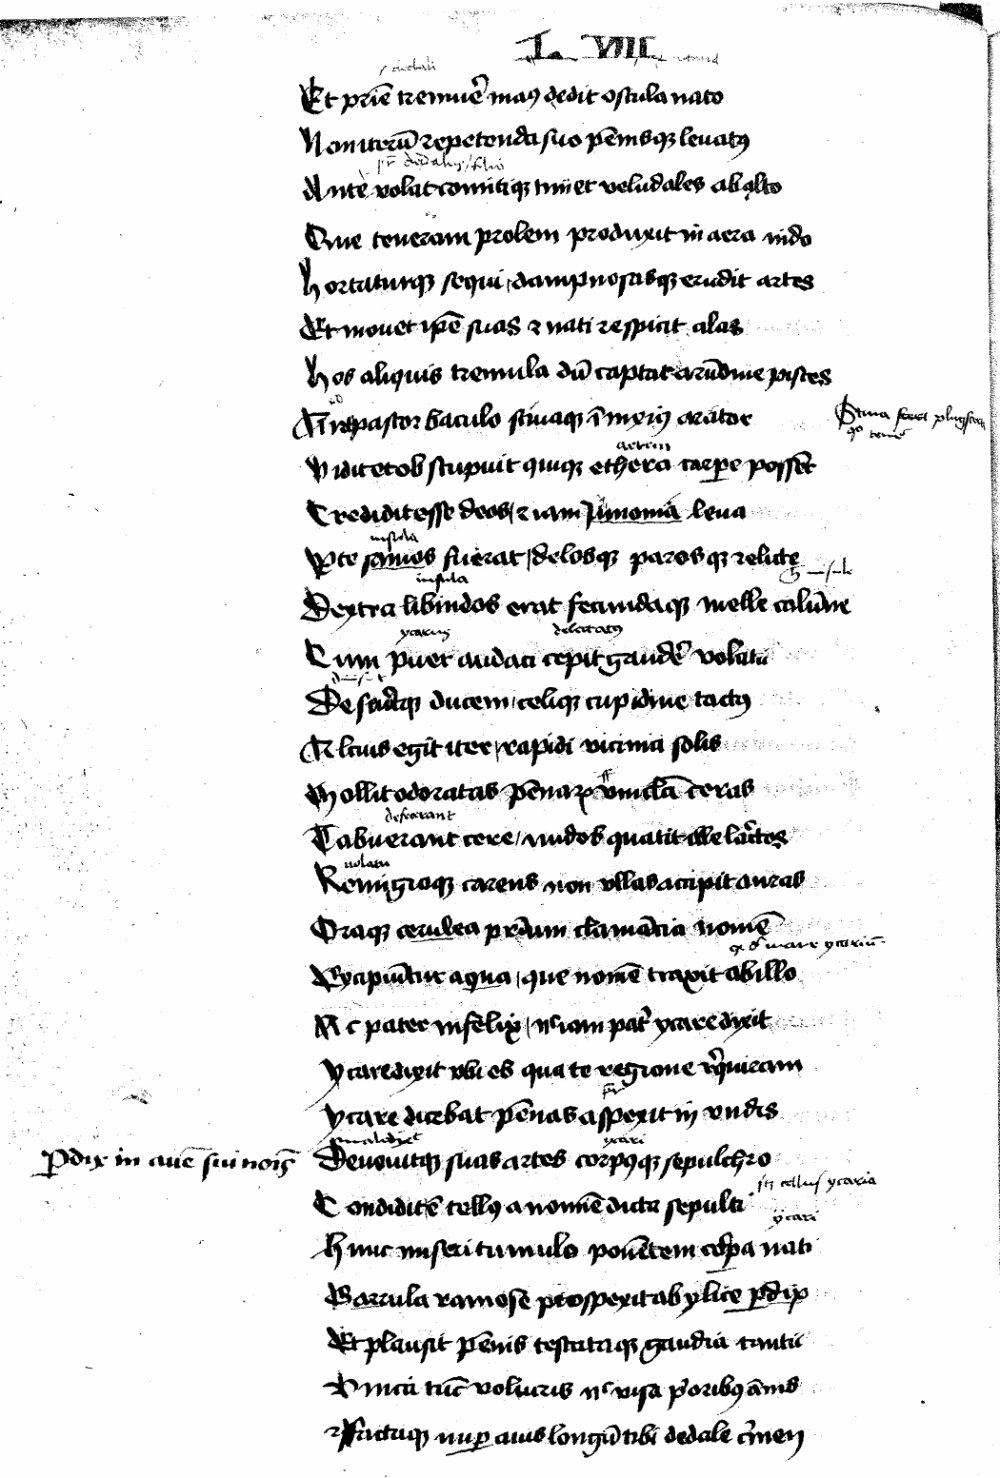 L VIII
Et prie tremuer man9 dedit oscula nato
Non iteru repetenda suo penisq levat9
Ante volat comitiq timet velud ales ab alto
Que teneram prolem produxit in aera nido
hortaturq sequi dampnosasq erudit artes
Et movet ipe suas z nati respicit alas
hos aliquis tremula du captat arundine pisces
Aut pastor baculo stivaq inixus arator
artem
Vidit et obstupuit quiq ethera carpe posset
Credidit esse deos z iam Junonia leva
insula
Pte samos fuerat delosq parosq relicte
insula
Dextra libindos erat fecundaq melle calidne
ycarus delectatus
Cum puer audaci cepit gauder volatu
Deseruitq ducem celiq cupidine tactus
Altius egit iter rapidi vicinia solis
Mollit odoratas pennarum vincla ceras
defecerant
Tabuerant cere nudos quatit ille lacertos
volatu
Remigioq carens non ullas accipit auras
Oraq cerulea prium clamancia nome
mare ycariu
Excipiuntur aqua que nome traxit ab illo
At pater infelix nec iam pater ycare dixit
ycare dixit ubi es qua te regione requiram
ycare dicebat penas aspexit in undis
ycari
Pdix in ave sui nois Devovitq suas artes corp9q sepulchro
tellus ycaria
Condidit et tellus a nomine dicta sepulti
ycari
hunc miseri tumulo ponetem corpa nati
Garrula ramose prospexit ab ylice pdix
Et plausit penis testataq gaudia cantu
Unica tuc volucris nec visa prioribus annis
Factaq nup avis longu tibi dedale crimen